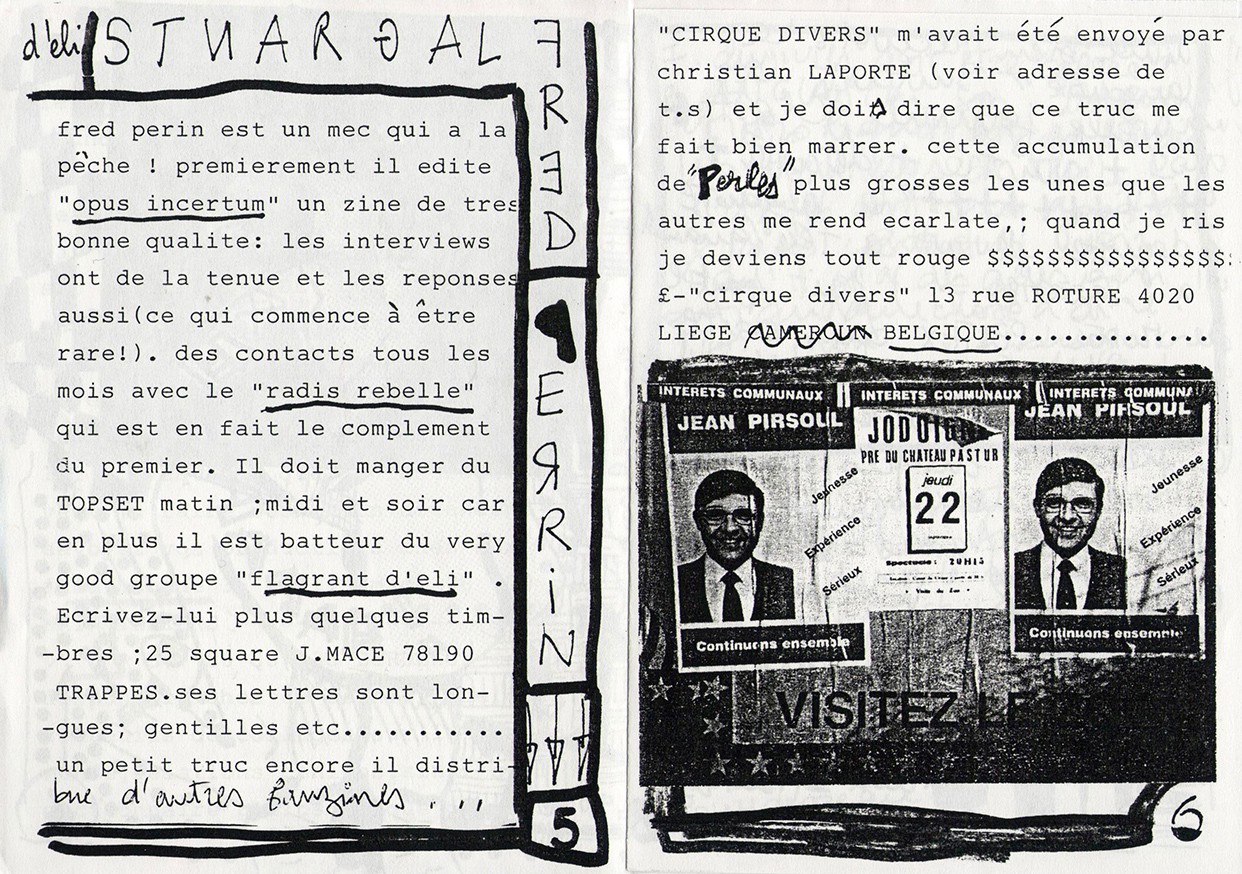 d'eli STNARGAL
FRED PERRIN
fred perin est un mec qui a la
pêche ! premierement il edite
"opus incertum" un zine de tres
bonne qualite: les interviews
ont de la tenue et les reponses
aussi(ce qui commence à être
rare!). des contacts tous les
mois avec le "radis rebelle"
qui est en fait le complement
du premier. Il doit manger du
TOPSET matin ;midi et soir car
en plus il est batteur du very
good groupe "flagrant d'eli" .
Ecrivez-lui plus quelques tim-
-bres ;25 square J.MACE 78190
TRAPPES.ses lettres sont lon-
-gues; gentilles etc...........
un petit truc encore il distri-
bue d'autres fanzines . . .
5
"CIRQUE DIVERS" m'avait été envoyé par
christian LAPORTE (voir adresse de
t.s) et je dois dire que ce truc me
fait bien marrer. cette accumulation
de "Perles" plus grosses les unes que les
autres me rend ecarlate,; quand je ris
je deviens tout rouge $$$$$$$$$$$$$$$$
£-"cirque divers" 13 rue ROTURE 4020
LIEGE CAMEROUN BELGIQUE..............
INTERETS COMMUNAUX
JEAN PIRSOUL
Jeunesse
Expérience
Sérieux
Continuons ensemble
INTERETS COMMUNAUX
JODOIGN
PRE DU CHATEAU PASTUR
jeudi
22
Spectacle: 20H15
INTERETS COMMUNA
JEAN PIRSOUL
Jeunesse
Expérience
Sérieux
Continuons ensemble
VISITEZ LE
6